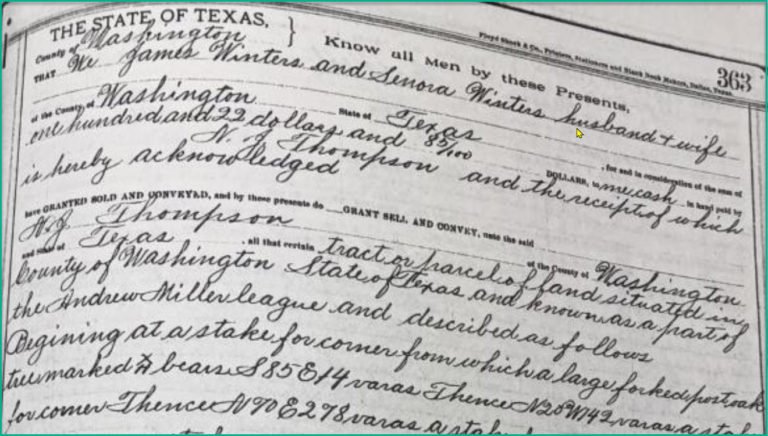 THE STATE OF TEXAS,
County of Washington
Know all Men by these Presents,
Floyd Shock & Co., Printers, Stationers and Blank Book Makers, Dallas, Texas.
363
THAT We James Winters and Senora Winters husband & wife
of the County of Washington State of Texas, for and in consideration of the sum of
one hundred and 22 dollars and 85/100 DOLLARS, to me, cash in hand paid by
N. J. Thompson and the receipt of which
is hereby acknowledged
have GRANTED SOLD AND CONVEYED, and by these presents do GRANT SELL AND CONVEY, unto the said
N. J. Thompson of the County of Washington
and State of Texas, all that certain tract or parcel of land situated in
County of Washington State of Texas and known as a part of
the Andrew Miller league and described as follows
Begining at a stake for corner from which a large forked post oak
tree marked bears S 85 E 14 varas Thence N 20 W 142 varas a stake
for corner Thence N 70 E 278 varas a stake